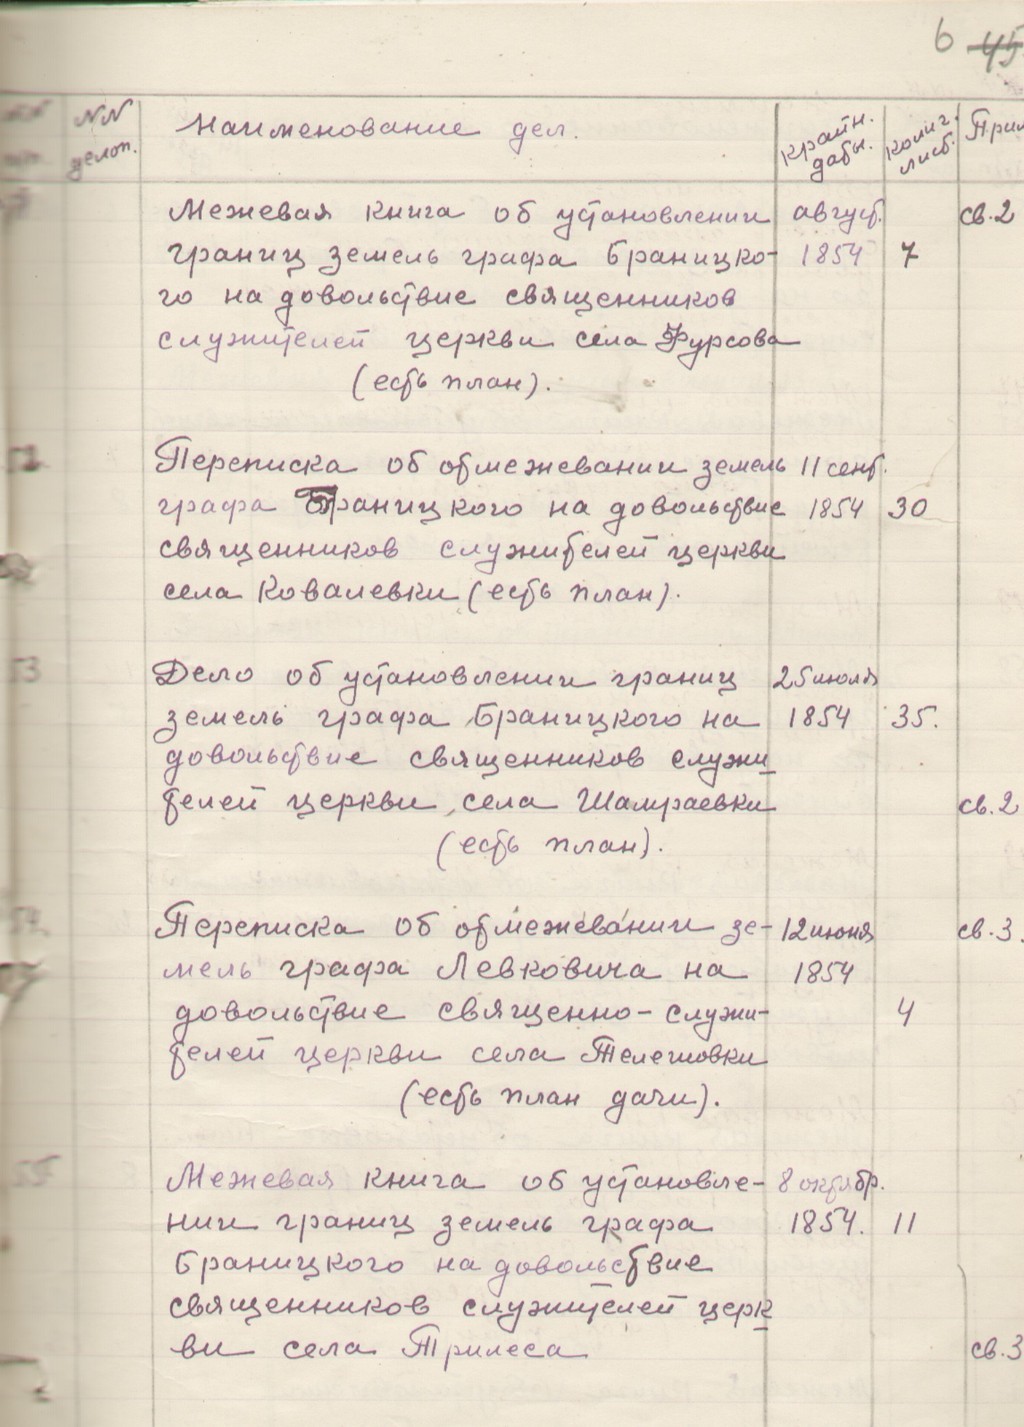 6 45
NN делоп. Наименование дел. Крайн. даты. колич. лист. Прим
Межевая книга об установлении август. св. 2
границ земель графа Браницко- 1854 7
го на довольствие священников
служителей церкви села Фурсова
(есть план).
52 Переписка об отмежевании земель 11 сент.
графа Браницкого на довольствие 1854 30
священников служителей церкви
села Ковалевки (есть план).
53 Дело об установлении границ 25 июля
земель графа Браницкого на 1854 35.
довольствие священников служи
телей церкви села Шамраевки св. 2
(есть план).
54 Переписка об отмежевании зе- 12 июня св. 3.
мель графа Левковича на 1854
довольствие священно-служи- 4
телей церкви села Телешовки
(есть план дачи).
55 Межевая книга об установле- 8 октябр.
нии границ земель графа 1854. 11
Браницкого на довольствие
священников служителей церк
ви села Трилеса св. 3